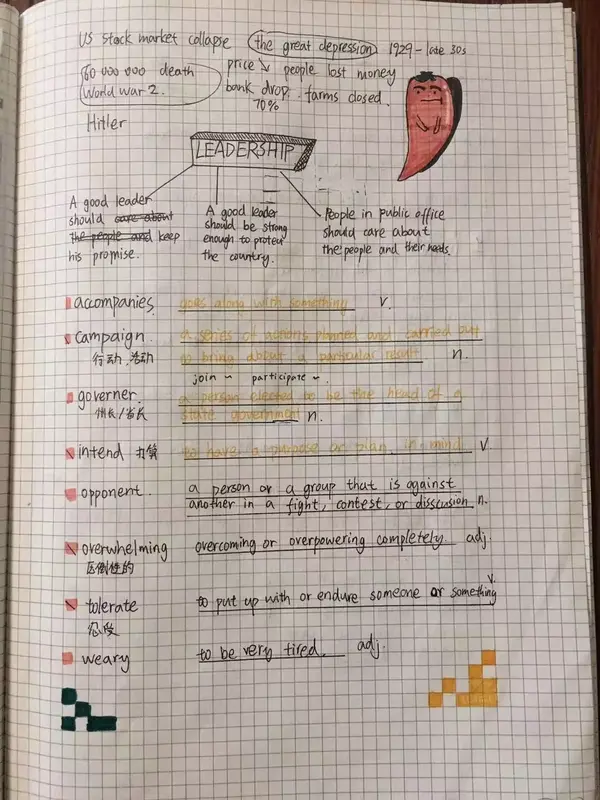 US stock market collapse the great depression 1929 - late 30s
60 000 000 death
World war 2.
price ↘ people lost money
bank drop. farms closed.
70%
Hitler
LEADERSHIP
A good leader
should care about
the people and keep
his promise.
A good leader
should be strong
enough to protect
the country.
People in public office
should care about
the people and their needs.
accompanies. goes along with something v.
campaign. a series of actions planned and carried out
行动.活动 to bring about a particular result. n.
join ~ participate ~.
governer. a person elected to be the head of a
州长/省长 state government n.
intend 打算 to have a purpose or plan in mind. v.
opponent. a person or a group that is against
another in a fight, contest, or disscusion n.
overwhelming overcoming or overpowering completely. adj.
压倒性的
tolerate to put up with or endure someone or something v.
忍受
weary to be very tired. adj.